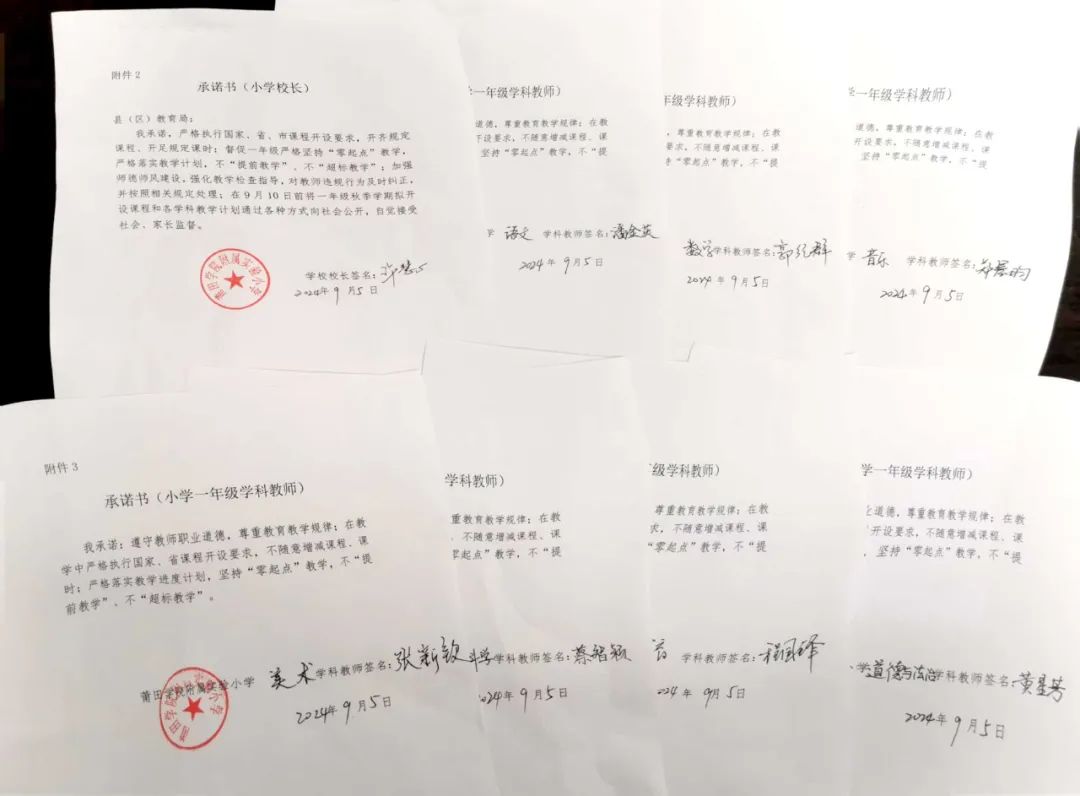 附件2
承诺书（小学校长）
县（区）教育局：
我承诺，严格执行国家、省、市课程开设要求，开齐规定
课程、开足规定课时；督促一年级严格坚持“零起点”教学，
严格落实教学计划，不“提前教学”、不“超标教学”；加强
师德师风建设，强化教学检查指导，对教师违规行为及时纠正，
并按照相关规定处理；在9月10日前将一年级秋季学期拟开
设课程和各学科教学计划通过各种方式向社会公开，自觉接受
社会、家长监督。
莆田学院附属实验小学
学校校长签名：
2024年9月5日
一年级学科教师）
道德，尊重教育教学规律；在教
开设要求，不随意增减课程、课
坚持“零起点”教学，不“提
语文 学科教师签名：潘金英
2024年9月5日
年级学科教师）
，尊重教育教学规律；在教
要求，不随意增减课程、课
“零起点”教学，不“提
数学学科教师签名：郭纪群
2024年9月5日
一年级学科教师）
道德，尊重教育教学规律；在教
开设要求，不随意增减课程、课
坚持“零起点”教学，不“提
学 音乐 学科教师签名：
2024年9月5日
附件3
承诺书（小学一年级学科教师）
我承诺：遵守教师职业道德，尊重教育教学规律；在教
学中严格执行国家、省课程开设要求，不随意增减课程、课
时；严格落实教学进度计划，坚持“零起点”教学，不“提
前教学”、不“超标教学”。
莆田学院附属实验小学 美术 学科教师签名：张新钗
莆田学院附属实验小学
2024年9月5日
学科教师）
重教育教学规律；在教
、不随意增减课程、课
零起点”教学，不“提
科学学科教师签名：蔡智颖
2024年9月5日
级学科教师）
尊重教育教学规律；在教
求，不随意增减课程、课
“零起点”教学，不“提
学科教师签名：程国泽
2024年9月5日
学一年级学科教师）
道德，尊重教育教学规律；在教
开设要求，不随意增减课程、课
，坚持“零起点”教学，不“提
学道德与法治学科教师签名：黄星芳
2024年9月5日